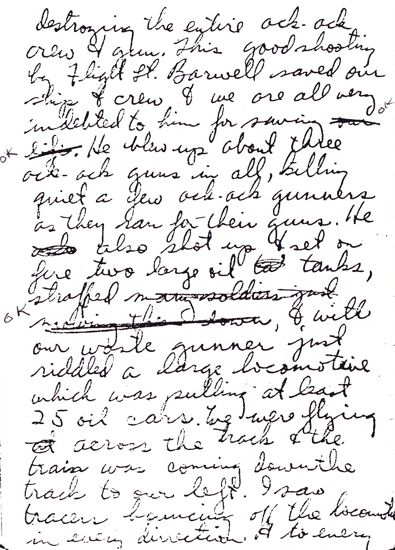 destroying the entire ack-ack
crew & gun. This good shooting
by Flight Lt. Barwell saved our
ship & crew & we are all very
OK
indebted to him for saving our
OK life. He blew up about three
ack-ack guns in all, killing
quiet a few ack-ack gunners
as they ran for their guns. He
also also shot up & set on
fire two large oil tanks,
OK
straffed many soldiers just
moving them down, & with
our waste gunner just
riddled a large locomotive
which was pulling at least
25 oil cars. We were flying
at across the track & the
train was coming down the
track to our left. I saw
tracers bouncing off the locomotive
in every direction. & to every